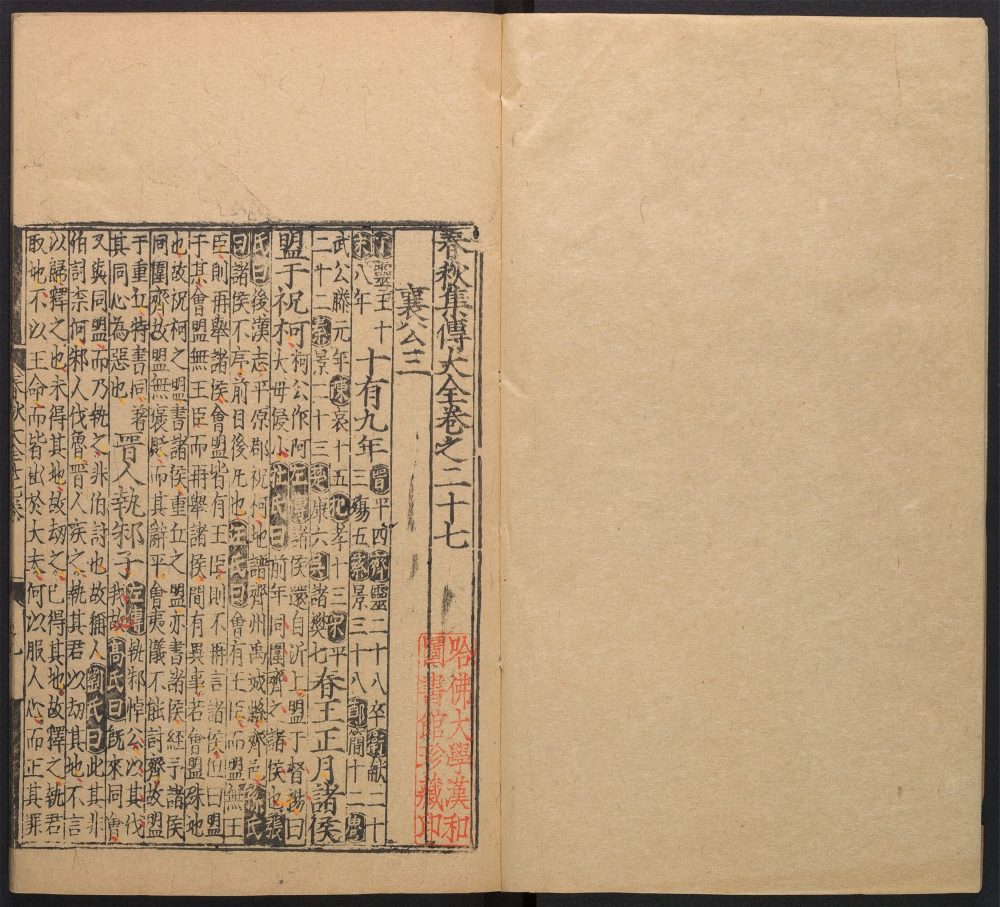 春秋集傳大全卷之二十七
襄公三
靈王十
八年
十有九年
晉平四齊靈二十八卒衛獻二十
三殤五蔡景三十八鄭簡十二曹
武公滕元年陳哀十五杞孝十三宋平
二十二秦景二十三楚康六吳諸樊七
春王正月諸侯
盟于祝柯
柯公作阿左傳諸侯還自沂上盟于督揚曰
大毋侵小杜氏曰前年同圍齊之諸侯也張
氏曰後漢志平原郡祝柯地譜齊州禹城縣齊邑孫氏
曰諸侯不序前目後凡也汪氏曰會有王臣而盟無王
臣則再舉諸侯會盟皆有王臣則不再言諸侯但曰盟
于某會盟無王臣而再舉諸侯間有異事若會盟殊地
也故祝柯之盟書諸侯重丘之盟亦書諸侯經于諸侯
同圍齊故盟無褒貶而其辭平會夷儀不能討齊故盟
于重丘特書同著
其同心為惡也
晉人執邾子
左傳執邾悼公以其伐
我故高氏曰旣來同會
又與同盟而乃執之非伯討也故稱人劉氏曰此其非
伯討柰何邾人伐魯晉人疾之執其君以劫其地不言
以歸釋之也未得其地故劫之已得其地故釋之執君
取地不以王命而皆出於大夫何以服人心而正其罪
哈佛大學漢和
圖書館珍藏印